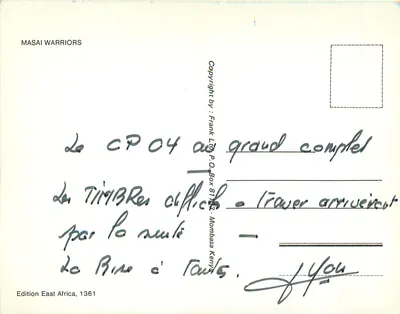 MASAI WARRIORS
Copyright by : Frank P.O. Box Mombasa Kenya
Le CP 04 au grand complet
Les TIMBRes difficile a Trouver arriveront
par la suite
La Bise à Toutes.
Edition East Africa, 1361